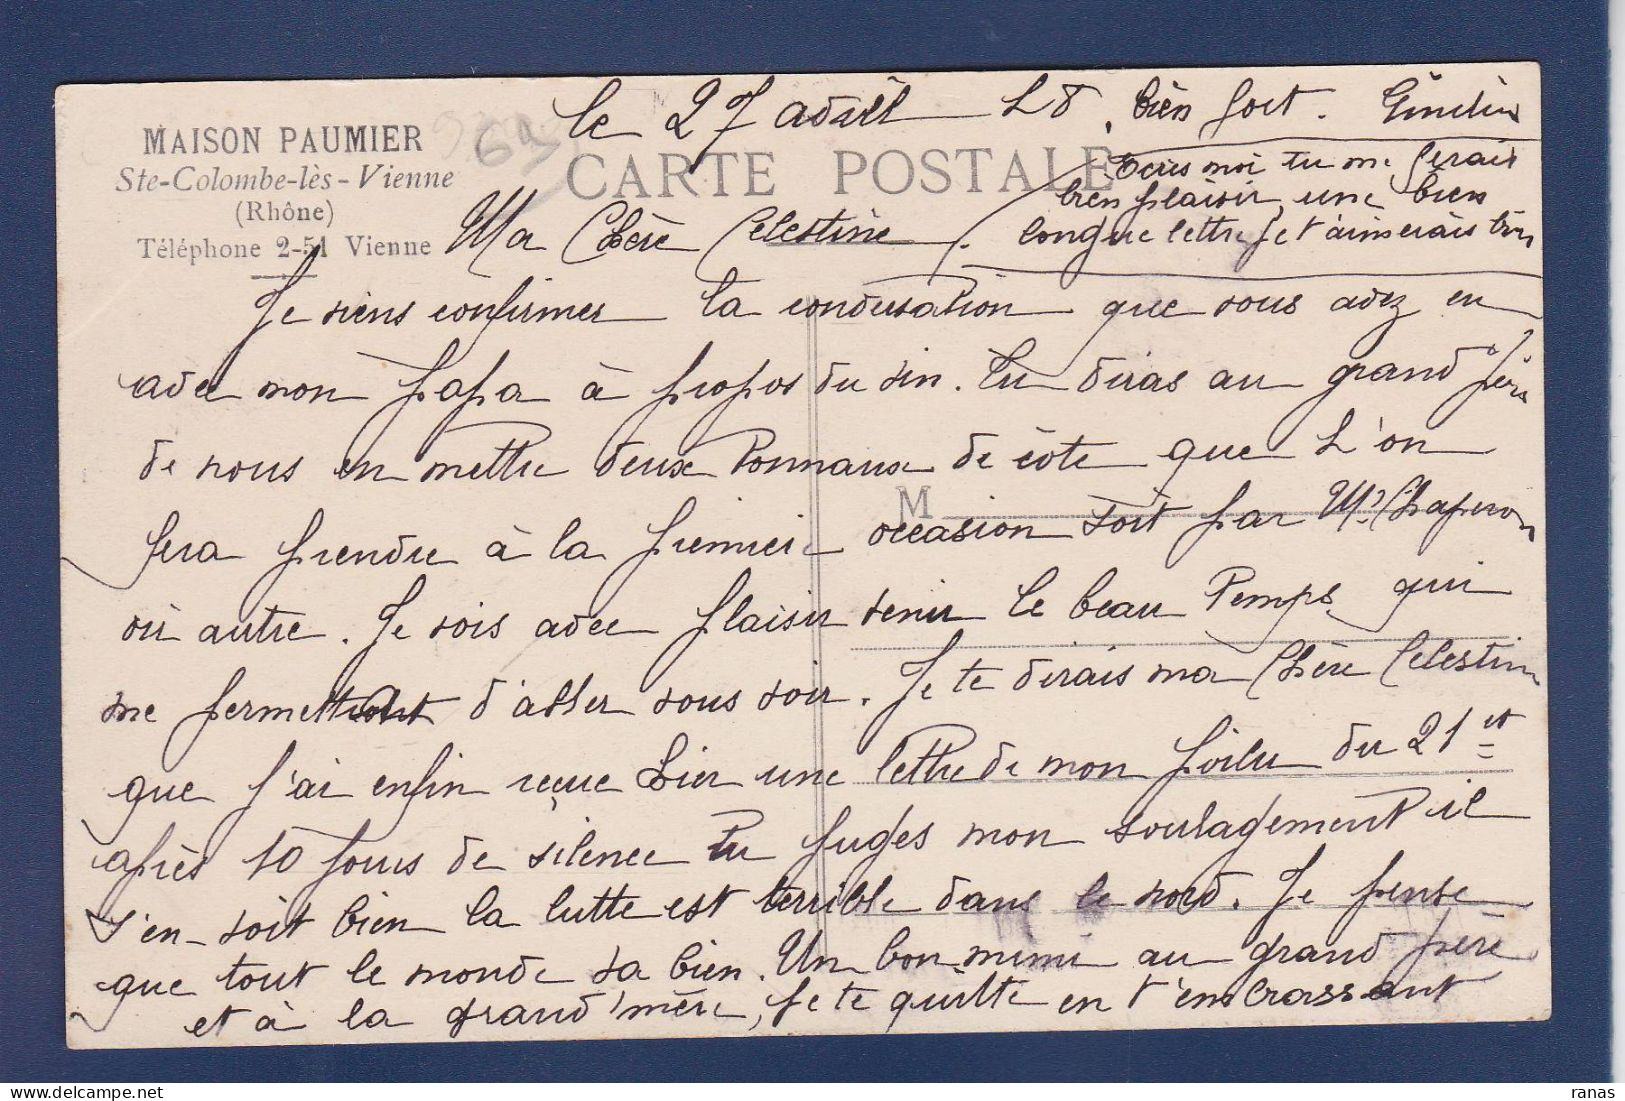 le 27 avril 18. bien fort. 
MAISON PAUMIER
Ste-Colombe-lès-Vienne
(Rhône)
Téléphone 2-51 Vienne
CARTE POSTALE
Ecris moi tu me ferais
bien plaisir, une bien
longue lettre je t'aimerais bien
Ma Chère Celestine
Je viens confirmer la conversation que vous avez eu
avec mon papa à propos du vin. Tu diras au grand père
de nous en mettre deux tonnaux de côte que l'on
M
fera prendre à la premiere occasion soit par Mr Chaperon
ou autre. Je vois avec plaisir venir le beau temps qui
me permettront d'aller vous voir. Je te dirais ma chère Celestine
que j'ai enfin reçue hier une lettre de mon poilu du 21 et
après 10 jours de silence tu juges mon soulagement il
s'en soit bien la lutte est terrible dans le nord. Je pense
que tout le monde va bien. Un bon mimi au grand père
et à la grand'mère, je te quitte en t'embrassant
ranas